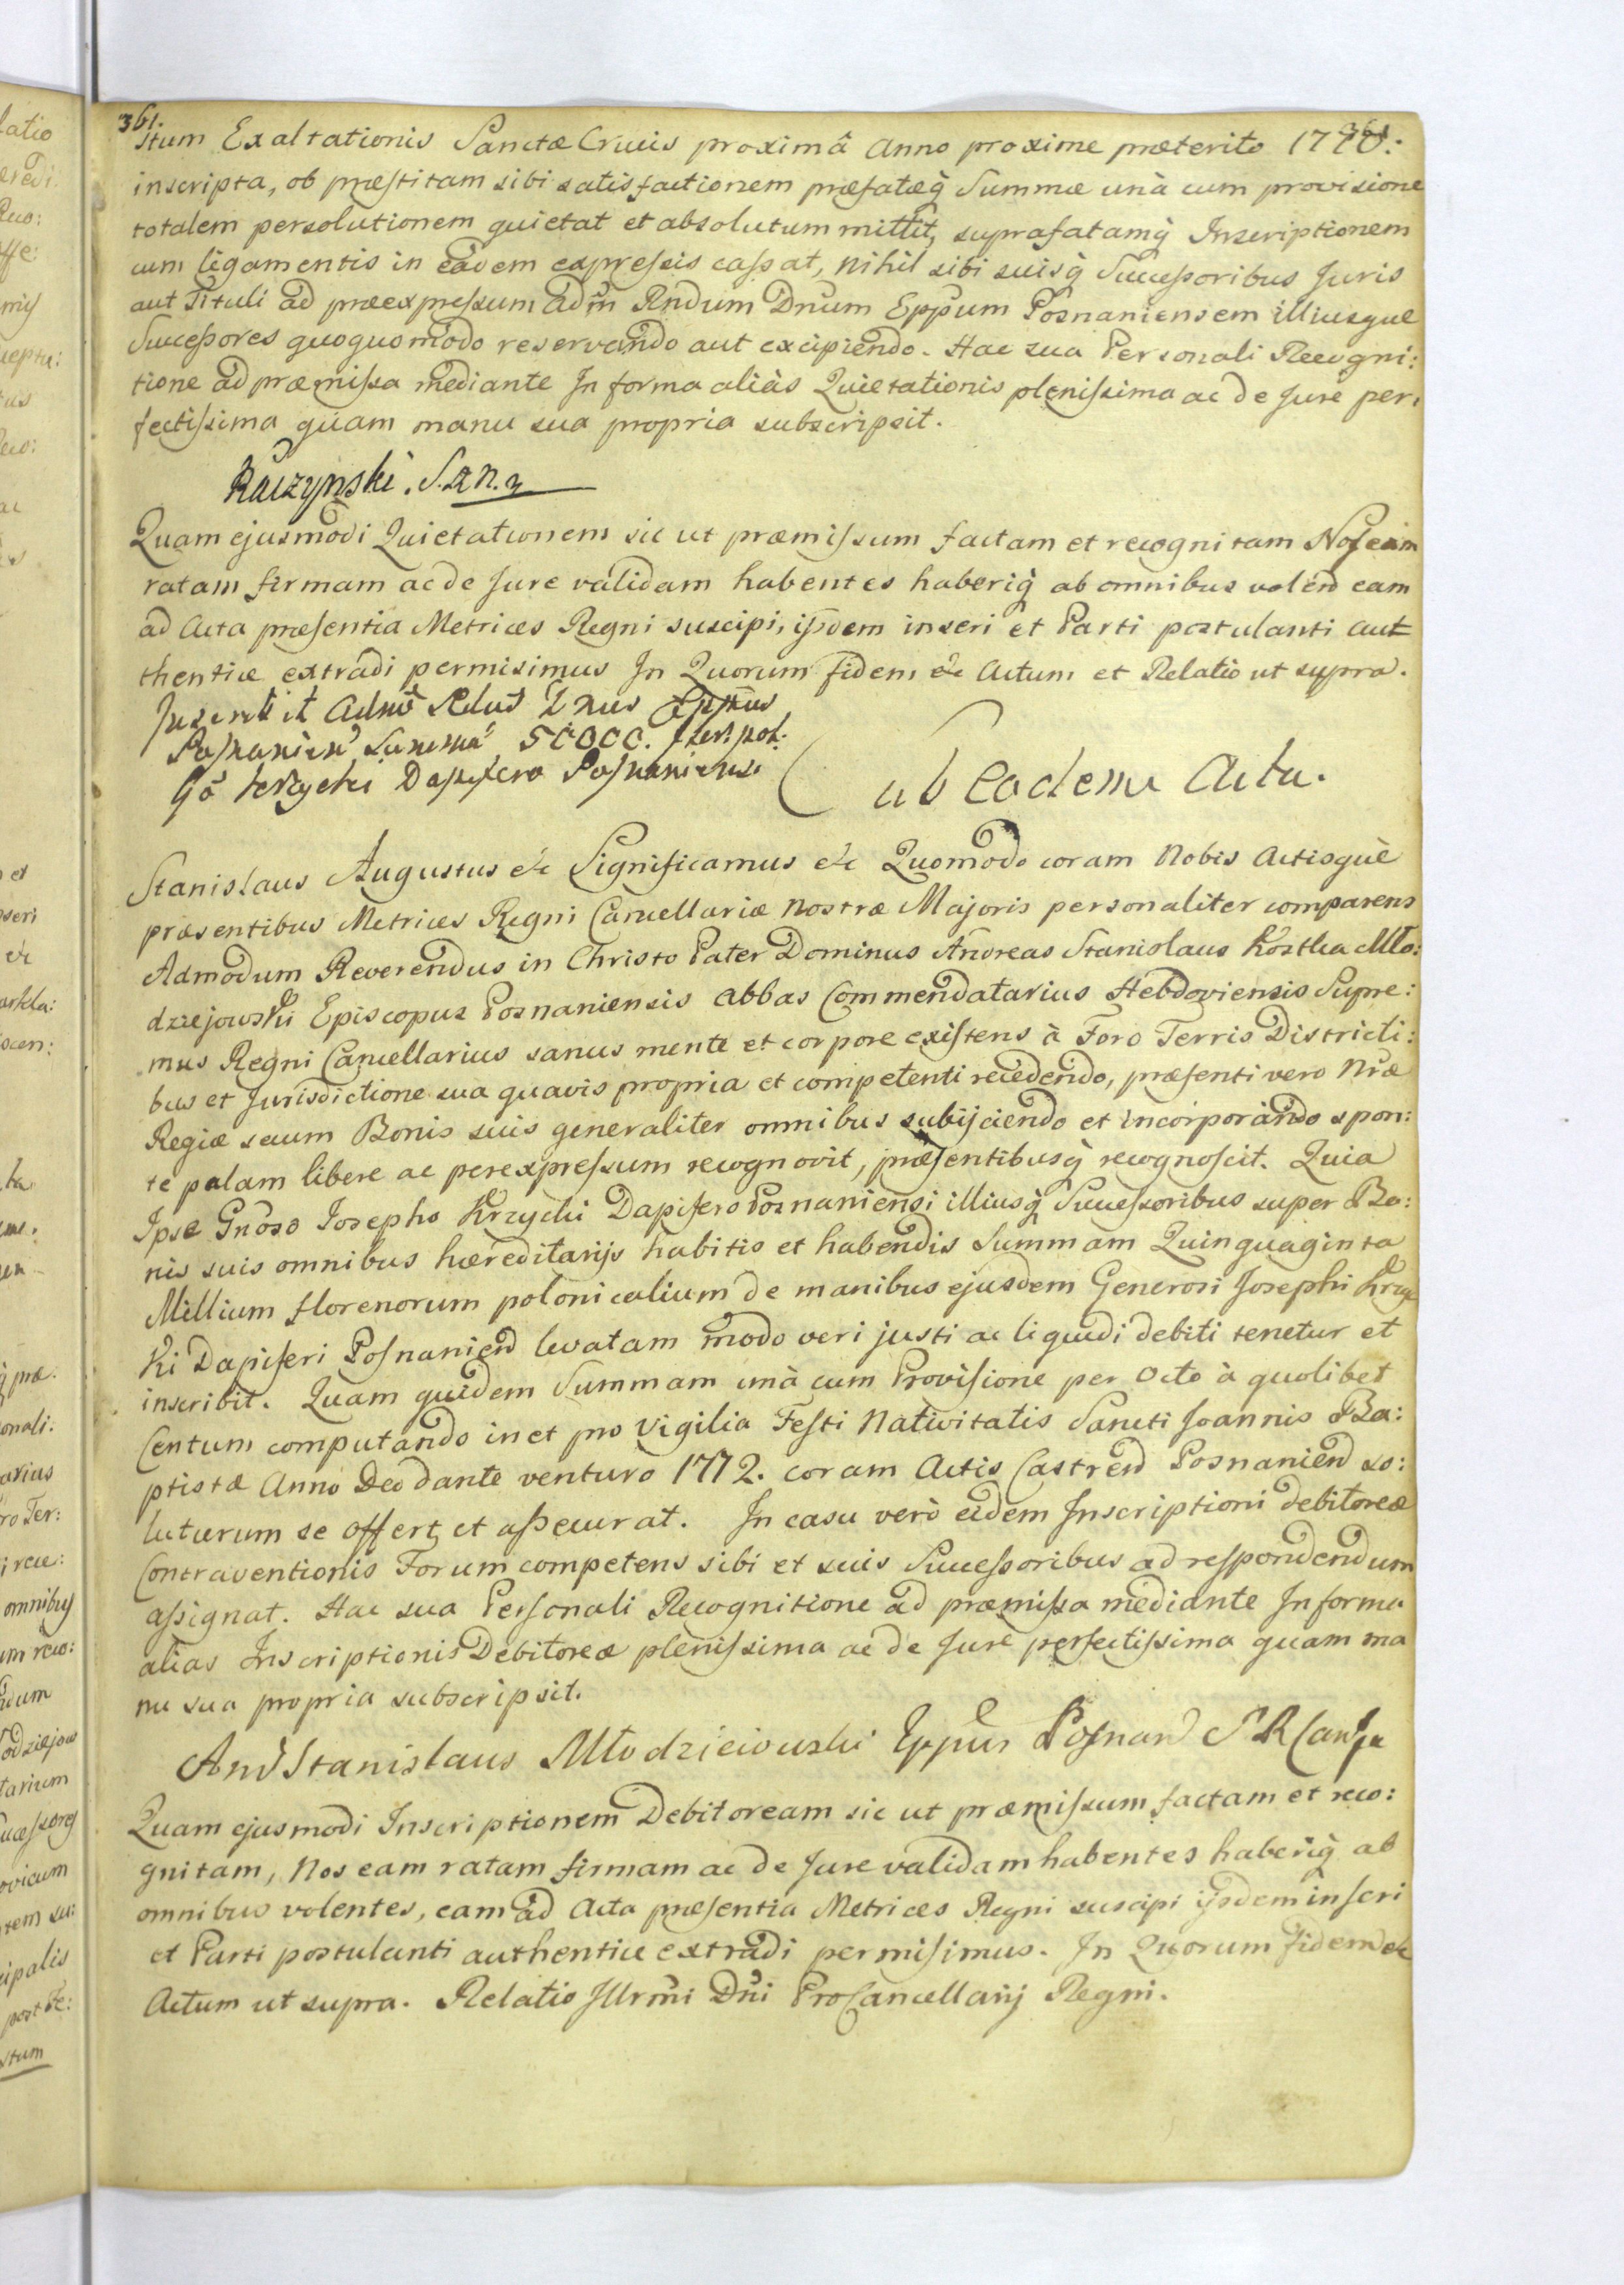 361. 361
stum Exaltationis Sanctæ Crucis proximâ Anno proxime præterito 1770:
inscripta, ob præstitam sibi satisfactionem præfatæq̃ Summæ unà cum provisione
totalem persolutionem quietat et absolutum mittit, suprafatamq̃ Inscriptionem
cum ligamentis in eâdem expressis cassat, nihil sibi suisq̃ Successoribus Juris
aut Tituli ad præexpressum Adm̃ Rñdum Dñum Eppum Posnaniensem illiusque
Successores quoquomodo reservando aut excipiendo. Hac sua Personali Recogni:
tione ad præmissa mediante In forma aliàs Quietationis plenissima ac de Jure per:
fectissima quam manu sua propria subscripsit.
Raczynski. S. R. N.
Quam ejusmodi Quietationem sic ut præmissum factam et recognitam Nos eam
ratam firmam ac de Jure validam habentes haberiq̃ ab omnibus volen̄ eam
ad Acta præsentia Metrices Regni suscipi, ijsdem inseri et Parti postulanti aut
thentice extradi permisimus In Quorum fidem &c Actum et Relatio ut supra.
Inscribit Admõ Rdus Dnus Eppus
Posnanien̄ Summã 50000. flor: pol:
Gõ Krzycki Dapifero Posnaniensi
ab Eodem Actu.
Stanislaus Augustus &c Significamus &c Quomodo coram Nobis Actisque
præsentibus Metrices Regni Cancellariæ Nostræ Majoris personaliter comparens
Admodum Reverendus in Christo Pater Dominus Andreas Stanislaus Kostka Mło:
dziejowski Episcopus Posnaniensis Abbas Commendatarius Hebdoviensis Supre:
mus Regni Cancellarius sanus mente et corpore existens à Foro Terris Districti:
bus et Jurisdictione sua quavis propria et competenti recedendo, præsenti vero Nr̃æ
Regiæ se cum Bonis suis generaliter omnibus subijciendo et incorporando spon:
te palam libere ac per expressum recognovit, præsentibusq̃ recognoscit. Quia
Ipse Gnõso Josepho Krzycki Dapifero Posnaniensi illiusq̃ Successoribus super Bo:
nis suis omnibus hæreditarijs habitis et habendis Summam Quinquaginta
Millium florenorum polonicalium de manibus ejusdem Generosi Josephi Krzyc
ki Dapiferi Posnanien̄ levatam modo veri justi ac liquidi debiti tenetur et
inscribit. Quam quidem Summam unà cum Provisione per Octo à quolibet
Centum computando in et pro Vigilia Festi Nativitatis Sancti Joannis Ba:
ptistæ Anno Deo dante venturo 1772. coram Actis Castren̄ Posnanien̄ so:
luturum se offert et assecurat. In casu verò eidem Inscriptioni debitoreæ
Contraventionis Forum competens sibi et suis Successoribus ad respondendum
assignat. Hac sua Personali Recognitione ad præmissa mediante In forma
alias Inscriptionis Debitoreæ plenissima ac de Jure perfectissima quam ma
nu sua propria subscripsit.
And Stanislaus Młodzieiowski Eppus Posnan S R Can
Quam ejusmodi Inscriptionem Debitoream sic ut præmissum factam et reco:
gnitam, Nos eam ratam firmam ac de Jure validam habentes haberiq̃ ab
omnibus volentes, eam ad Acta præsentia Metrices Regni suscipi ijsdem inseri
et Parti postulanti authentice extradi permisimus. In Quorum fidem &c
Actum ut supra. Relatio Illrm̃i Dñi ProCancellarij Regni.